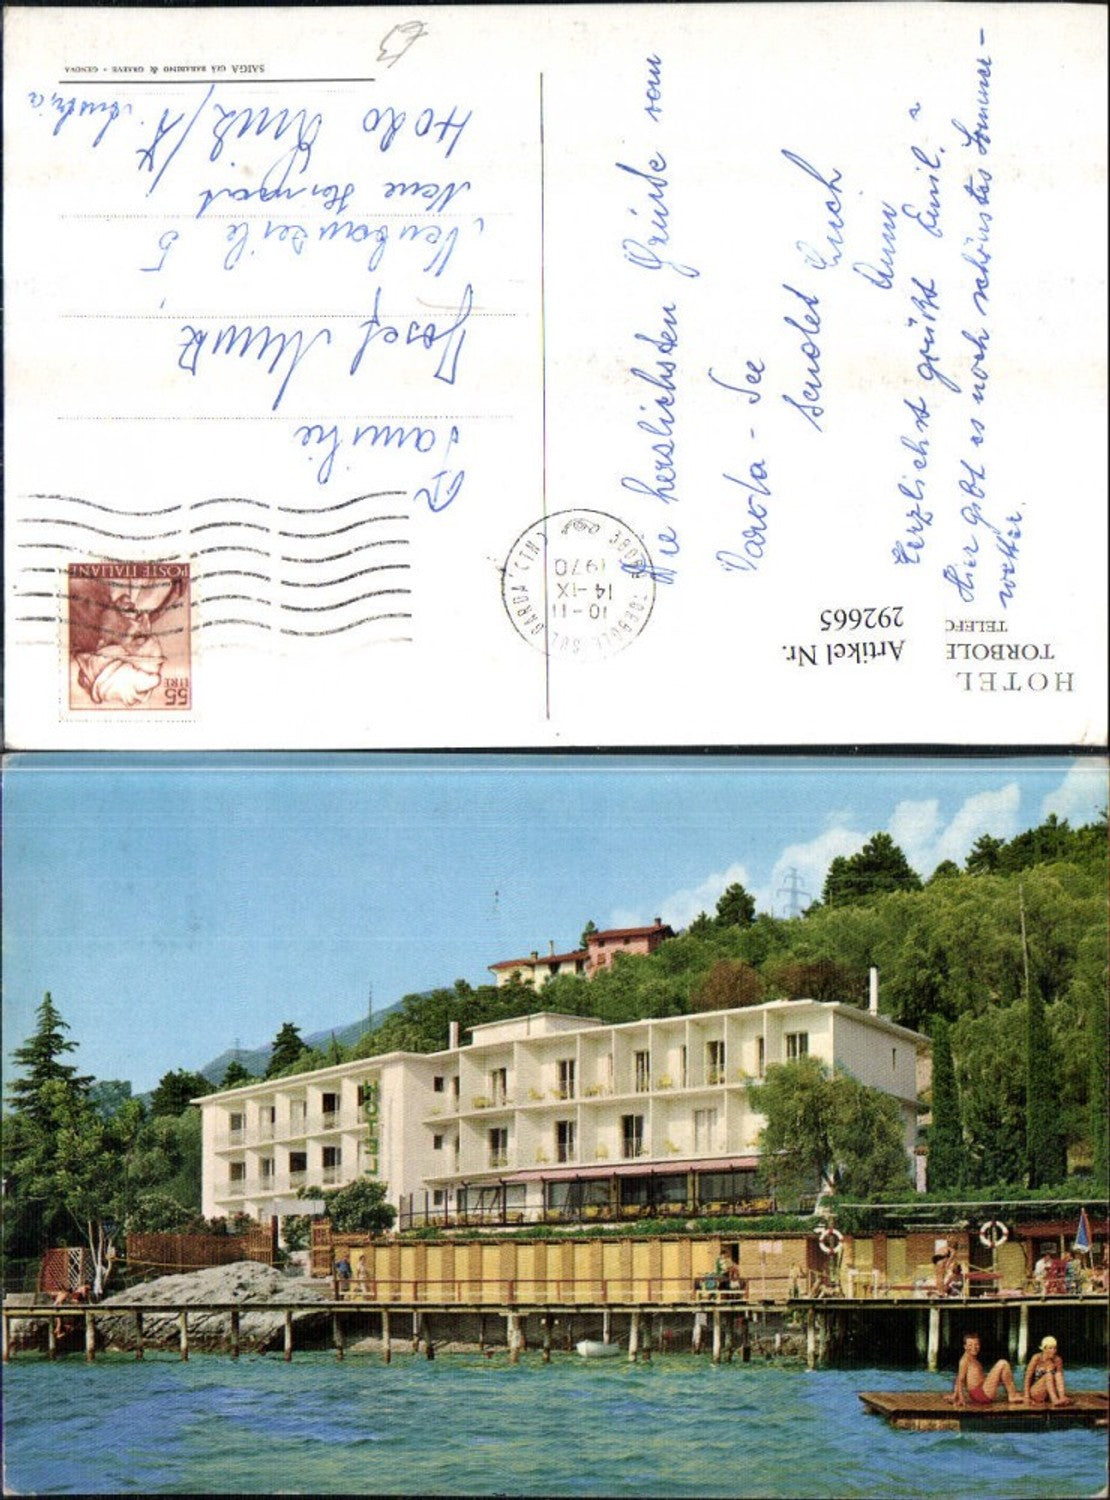 HOTEL
TORBOLE
TELEFO
Artikel Nr.
292665
Die herzlichsten Grüsse vom
Garda-See
sendet Euch
Anni
Herzlichst grüßt Emil.
Hier gibt es noch schönstes Sommer-
wetter.
38069 TORBOLE SUL GARDA (TN)
10-11
14-IX
1970
55
LIRE
POSTE ITALIANE
Familie
Josef
5
Neue Heimat
4020 Linz/
Austria
SAIGA GIÀ BARABINO & GRAEVE - GENOVA
HOTEL